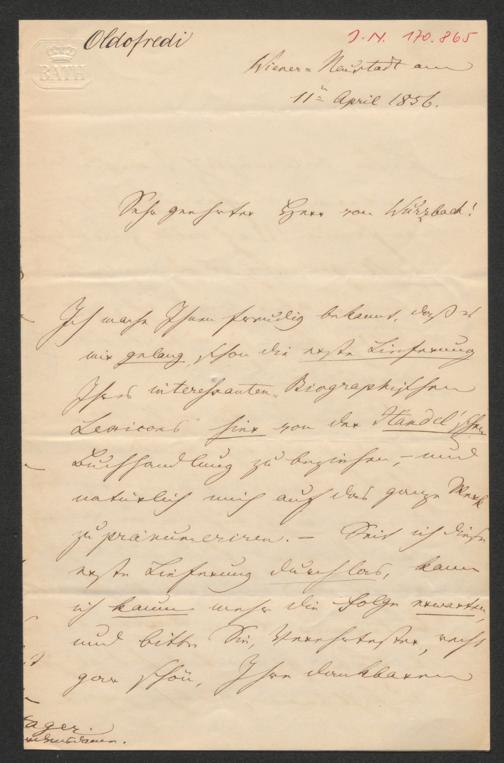 BATH
Oldofredi
J.N. 170.865
Wiener-Neustadt am
11n April 1856.
Sehr geehrter Herr von Wurzbach!
Ich mache Ihnen freudig bekannt, daß es
mir gelang schon die erste Lieferung
Ihres interessanten Biographischen
Lexicons hier von der Handel'schen
Buchhandlung zu beziehen, – und
natürlich mich auf das ganze Werk
zu pränumeriren. – Seit ich diese
erste Lieferung durchlas, kann
ich kaum mehr die Folge erwarten,
und bitte Sie, Verehrtester, recht
gar schön, Ihren dankbaren
ager.